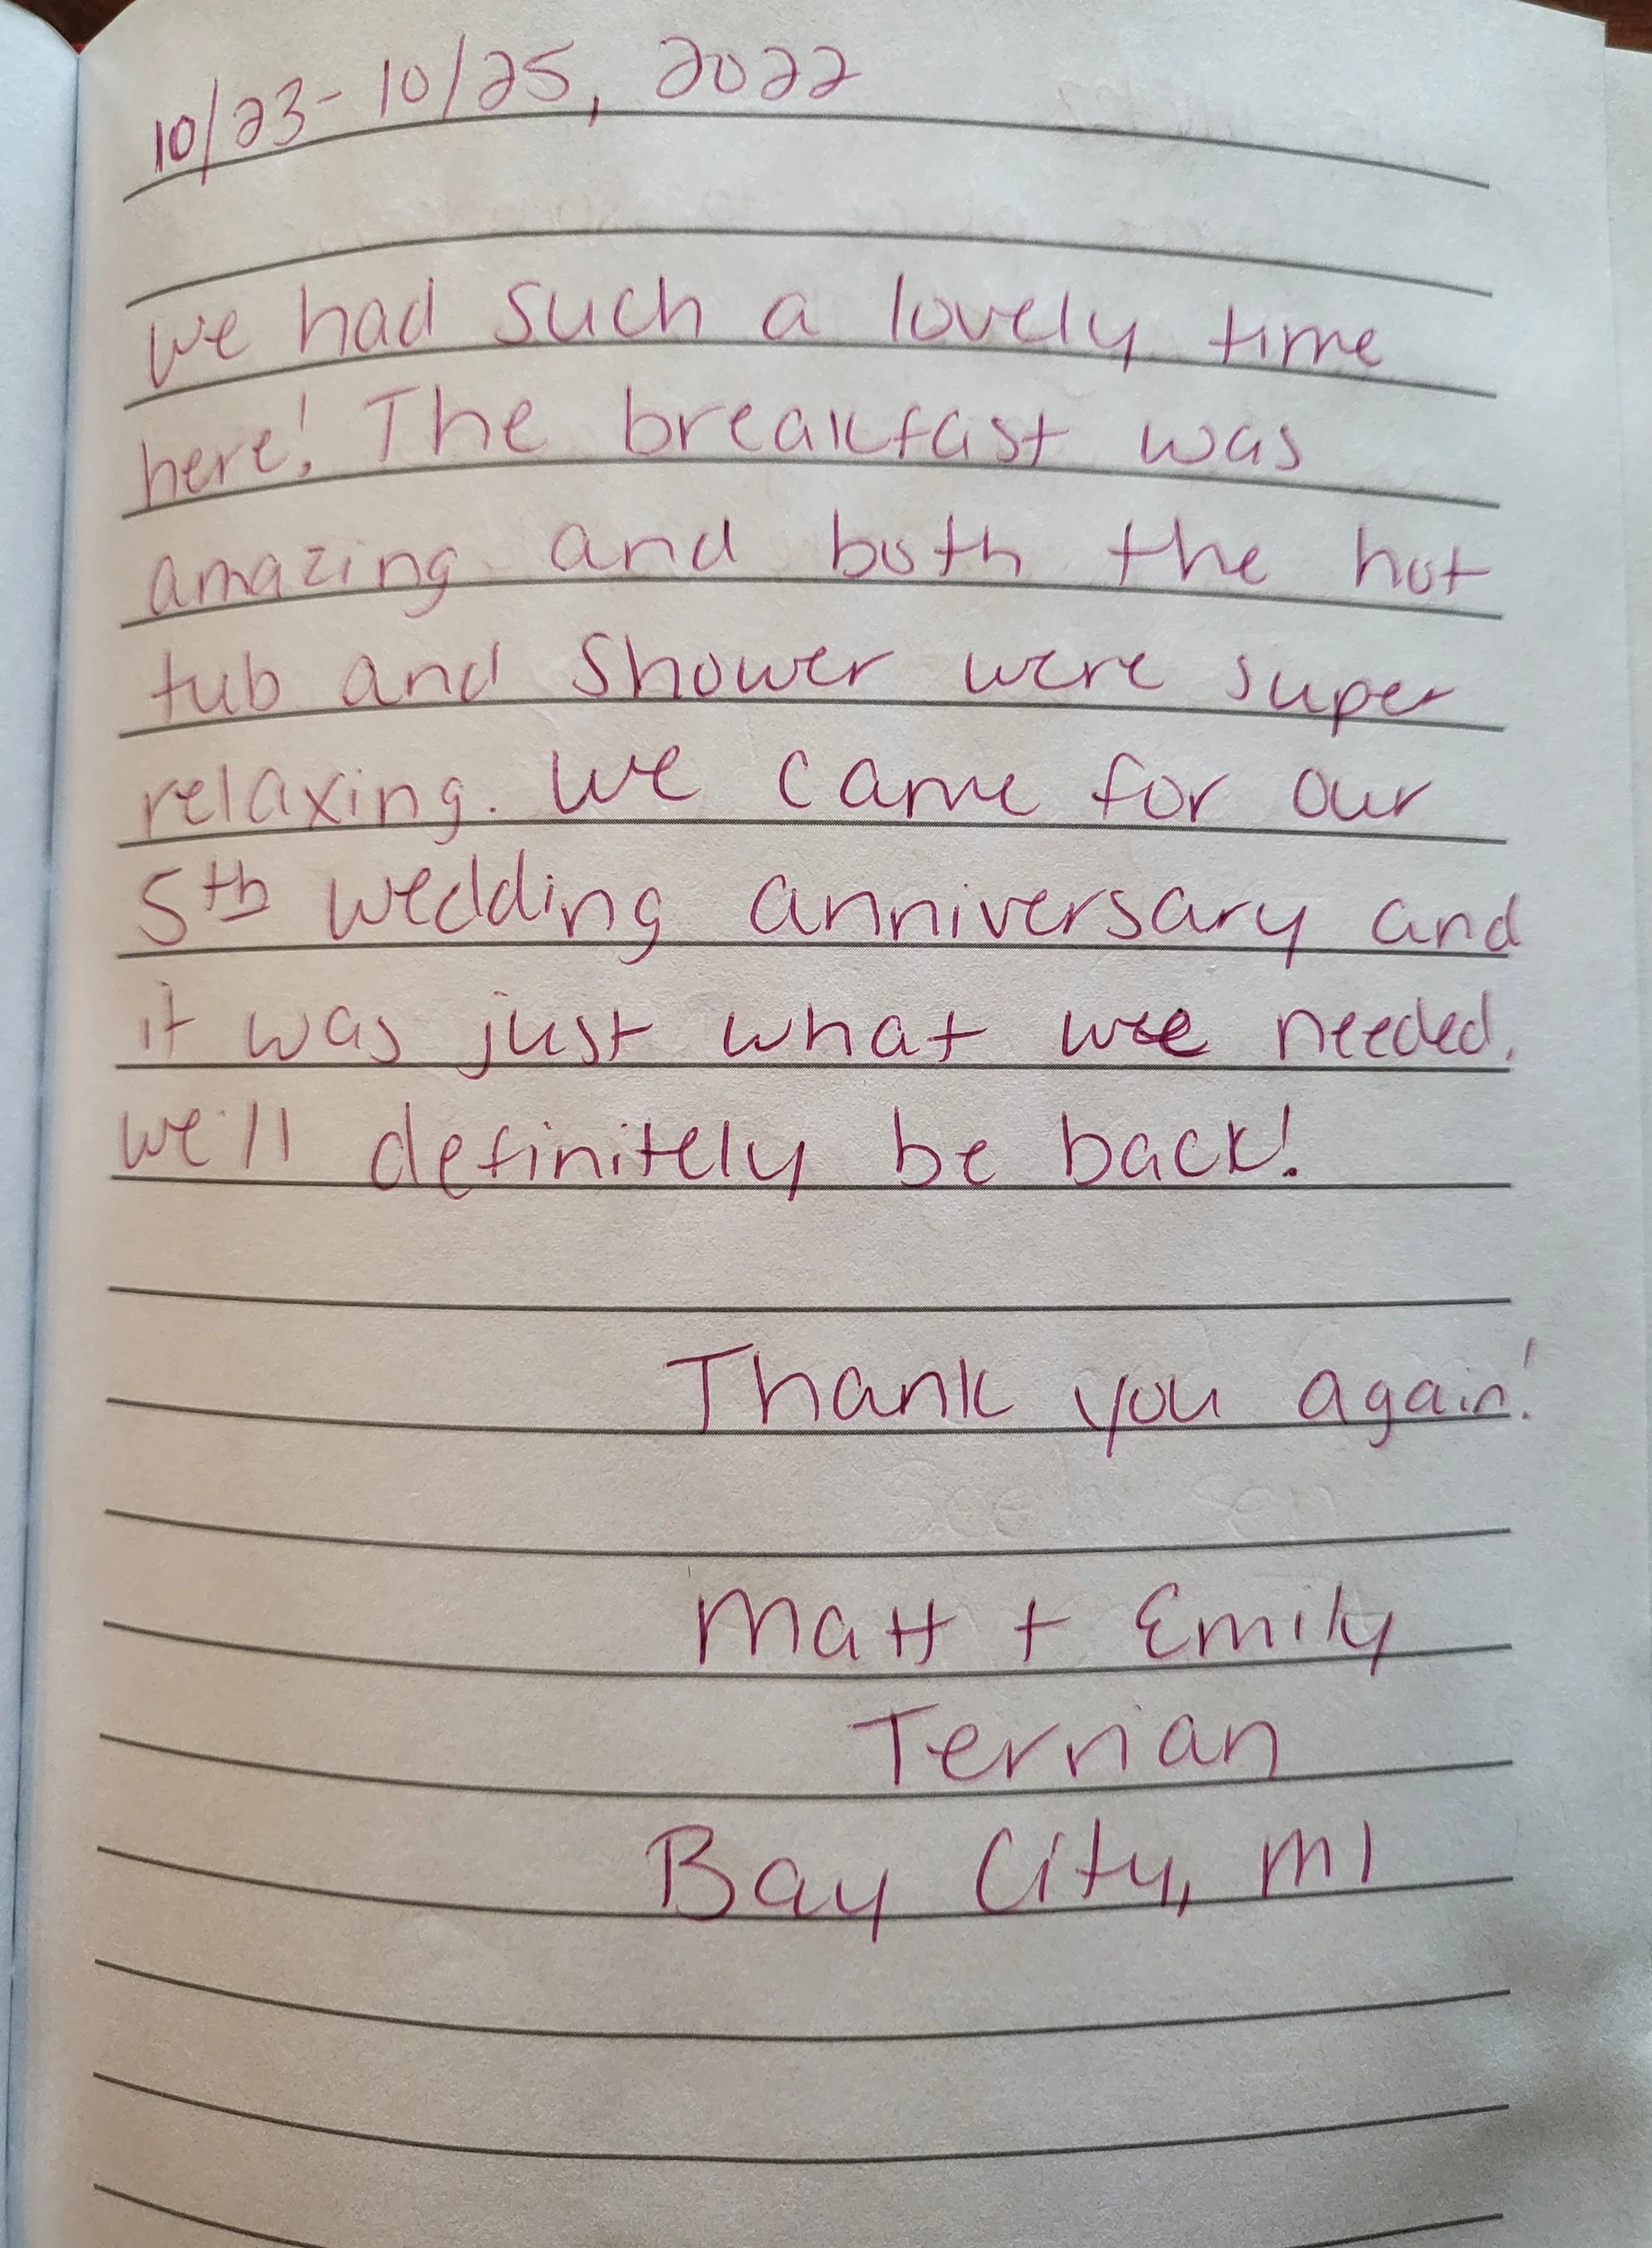 10/23-10/25, 2022
We had such a lovely time
here! The breakfast was
amazing and both the hot
tub and shower were super
relaxing. We came for our
5th wedding anniversary and
it was just what we needed.
We'll definitely be back!
Thank you again!
Matt + Emily
Bay City, MI